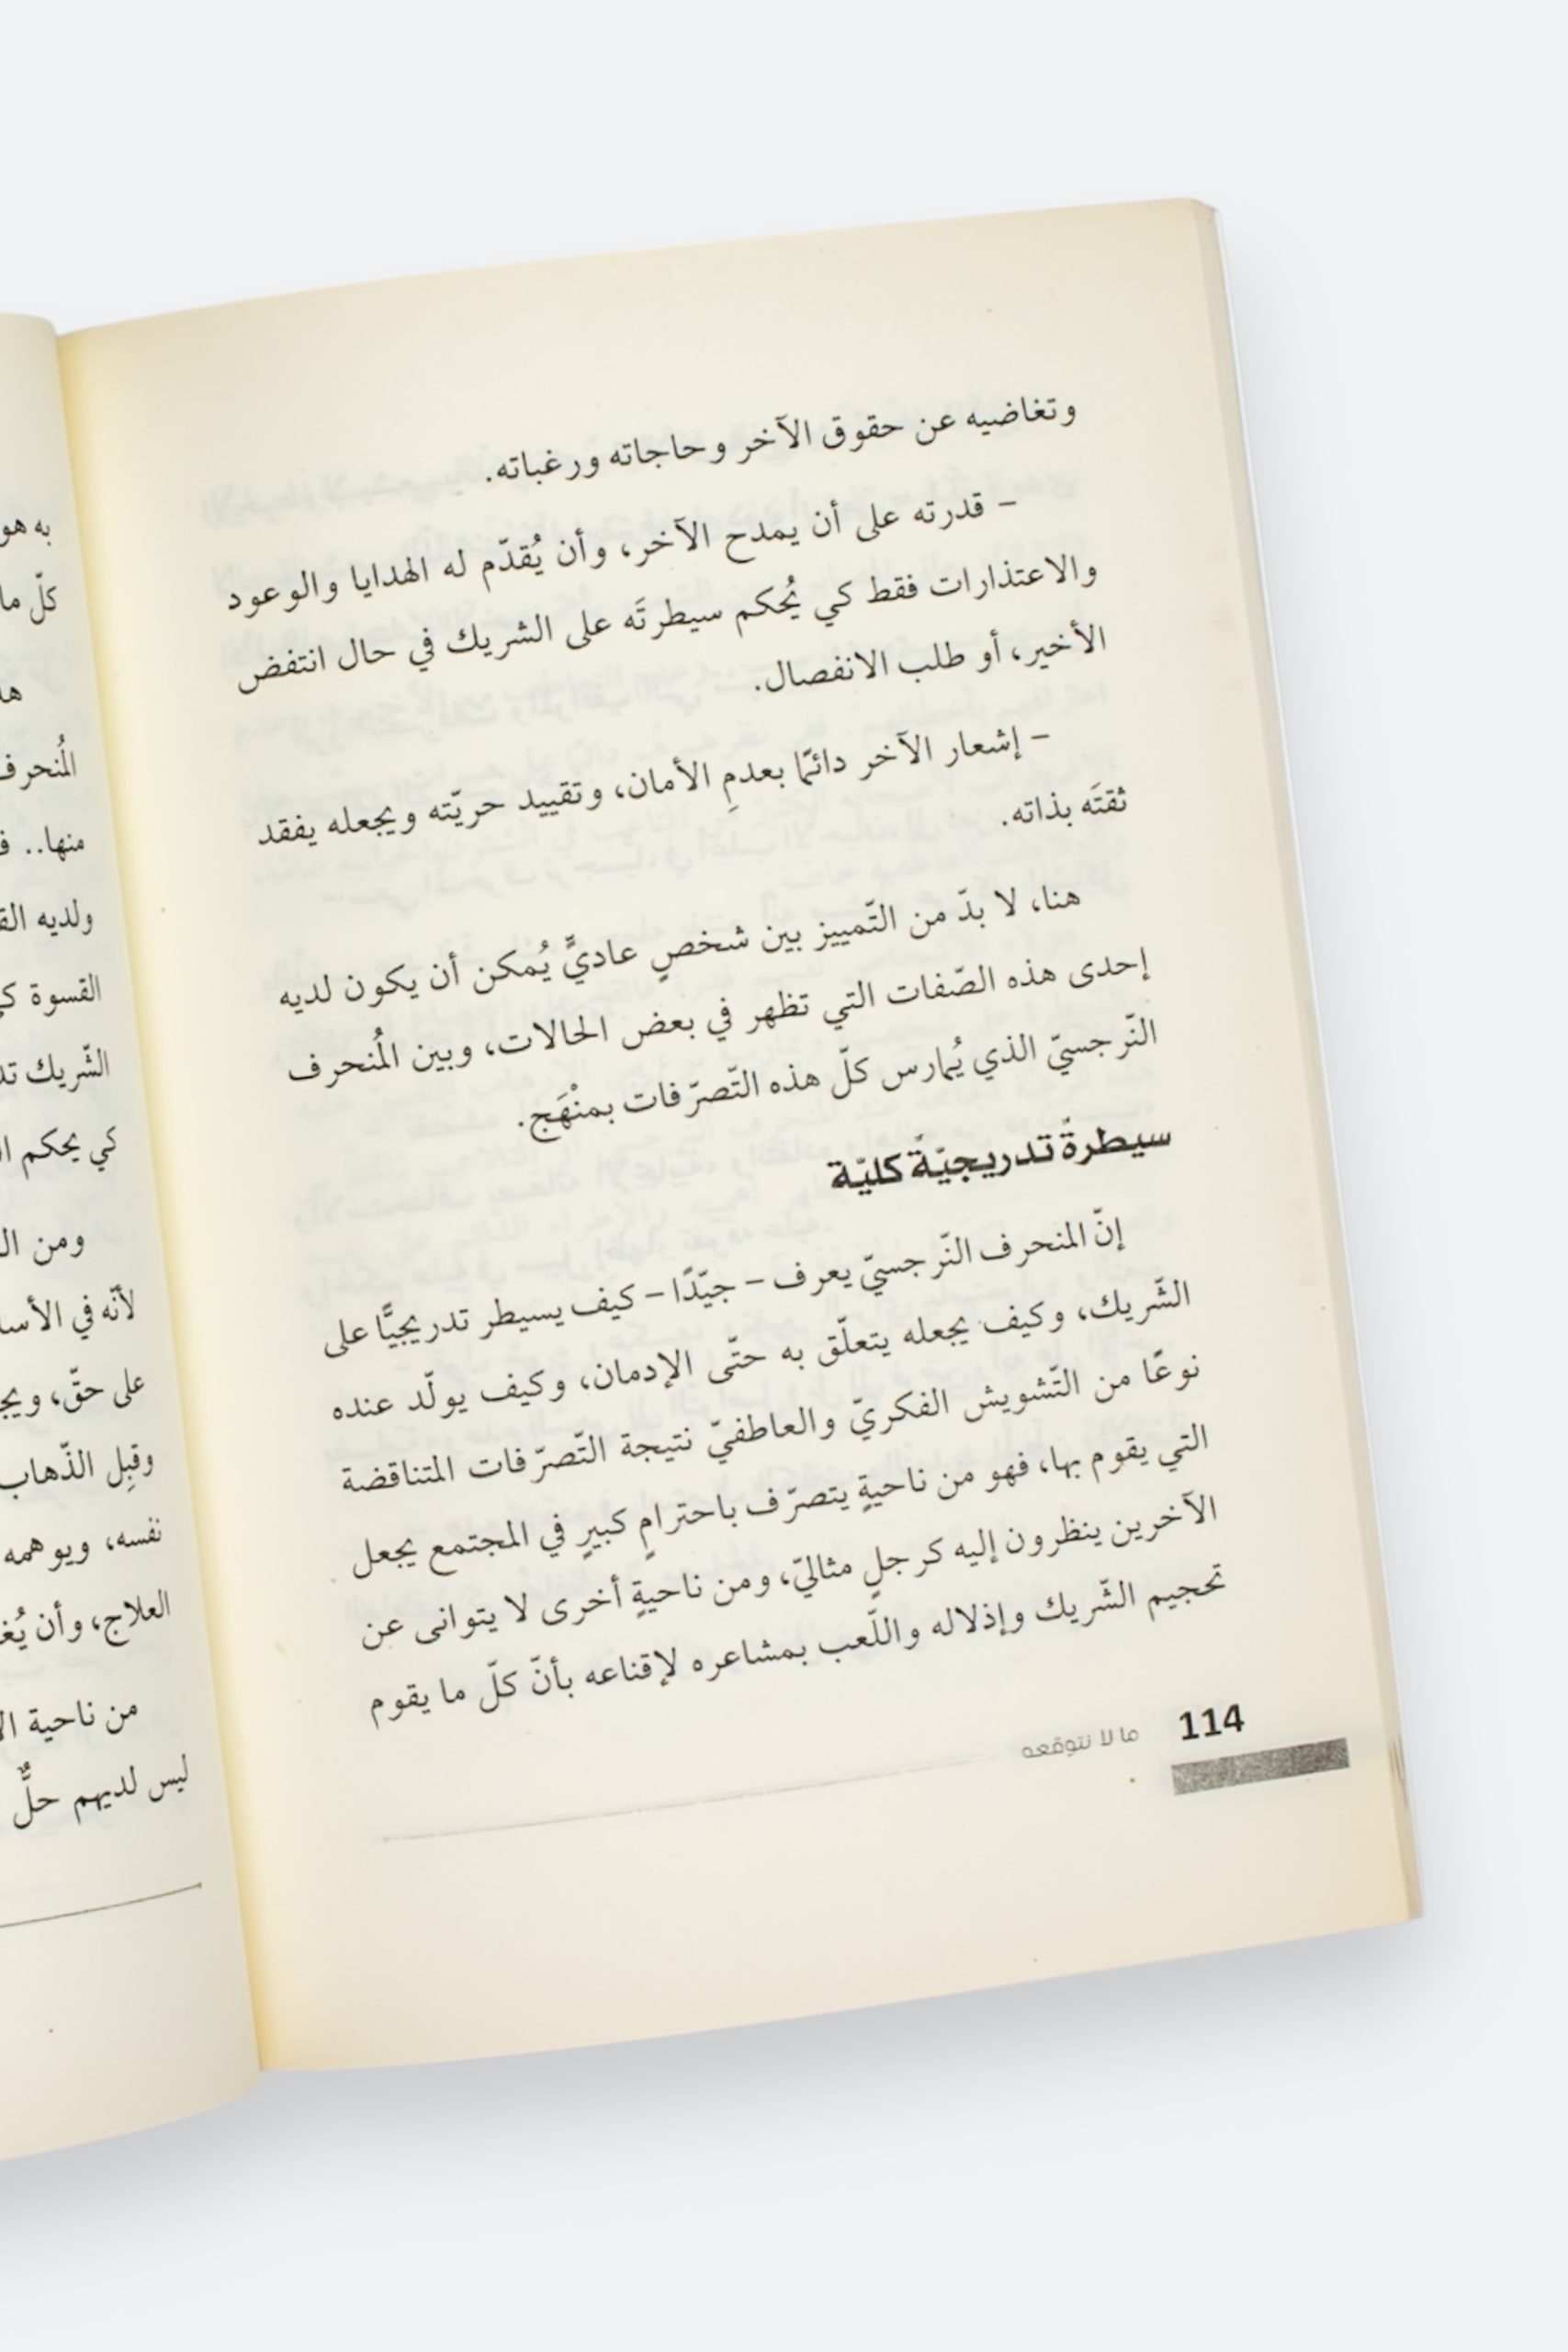 وتغاضيه عن حقوق الآخر وحاجاته ورغباته.
– قدرته على أن يمدح الآخر، وأن يُقدّم له الهدايا والوعود
والاعتذارات فقط كي يُحكم سيطرتَه على الشريك في حال انتفض
الأخير، أو طلب الانفصال.
– إشعار الآخر دائمًا بعدمِ الأمان، وتقييد حريّته ويجعله يفقد
ثقتَه بذاته.
هنا، لا بدّ من التّمييز بين شخصٍ عاديٍّ يُمكن أن يكون لديه
إحدى هذه الصّفات التي تظهر في بعض الحالات، وبين المُنحرف
النّرجسيّ الذي يُمارس كلّ هذه التّصرّفات بمنْهَج.
سيطرةٌ تدريجيّةٌ كليّة
إنّ المنحرف النّرجسيّ يعرف – جيّدًا – كيف يسيطر تدريجيًّا على
الشّريك، وكيف يجعله يتعلّق به حتّى الإدمان، وكيف يولّد عنده
نوعًا من التّشويش الفكريّ والعاطفيّ نتيجة التّصرّفات المتناقضة
التي يقوم بها، فهو من ناحيةٍ يتصرّف باحترامٍ كبيرٍ في المجتمع يجعل
الآخرين ينظرون إليه كرجلٍ مثاليّ، ومن ناحيةٍ أخرى لا يتوانى عن
تحجيم الشّريك وإذلاله واللّعب بمشاعره لإقناعه بأنّ كلّ ما يقوم
114 ما لا نتوقعه
به هو
كلّ ما
المُنحرف
منها..
ولديه
القسوة
الشّريك
كي يحكم
ومن
لأنّه في
على حقّ،
وقبِل الذّهاب
نفسه، ويوهمه
العلاج، وأن
من ناحية
ليس لديهم حلٌّ